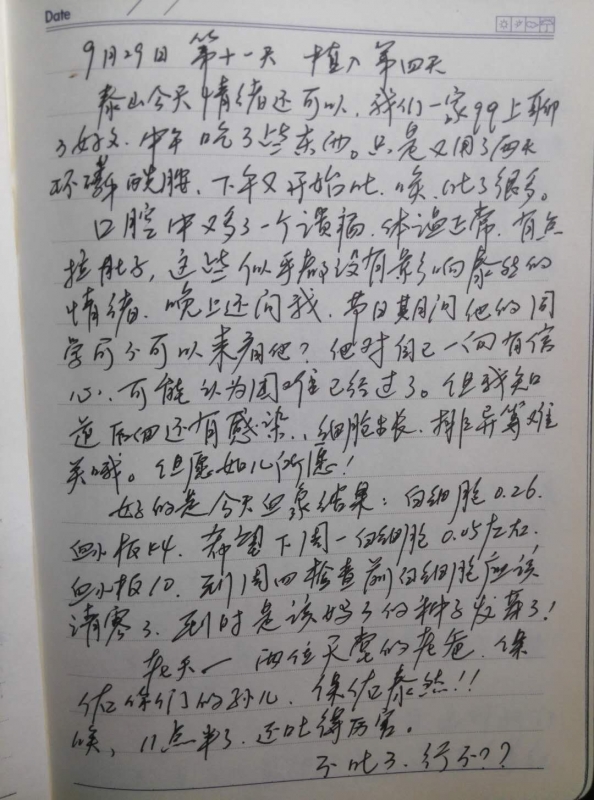 Date
9月29日 第十一天 植入第四天
泰山今天情绪还可以,我们一家qq上聊
了好久.中午吃了些东西。只是又用了两次
环磷酰胺,下午又开始吐.唉.吐了很多。
口腔中又多了一个溃疡.体温正常.有点
拉肚子,这些似乎都没有影响泰然的
情绪.晚上还问我.节日其间他的同
学可不可以来看他?他对自己一向有信
心.可能认为困难已经过了。但我知
道后面还有感染、细胞生长、排异等难
关哦。但愿如儿所愿!
好的是今天血象结果:白细胞0.26.
血小板44.希望下周一白细胞0.05左右.
血小板10.到周四检查前白细胞应该
清零了.到时是该妈了的种子发芽了!
老天一 两位天堂的老爸.保
佑你们的孙儿.保佑泰然!!
唉,11点半了.还吐得厉害。
不吐了.行不??